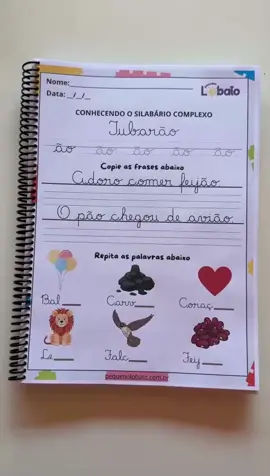 Nome:
Data: _/_/_
Lobato
CONHECENDO O SILABÁRIO COMPLEXO
Tubarão
ão ão ão ão ão
Copie as frases abaixo
Adoro comer feijão.
O pão chegou de avião.
Repita as palavras abaixo
Bal___ Carv___ Coraç___
Le___ Falc___ Feij___